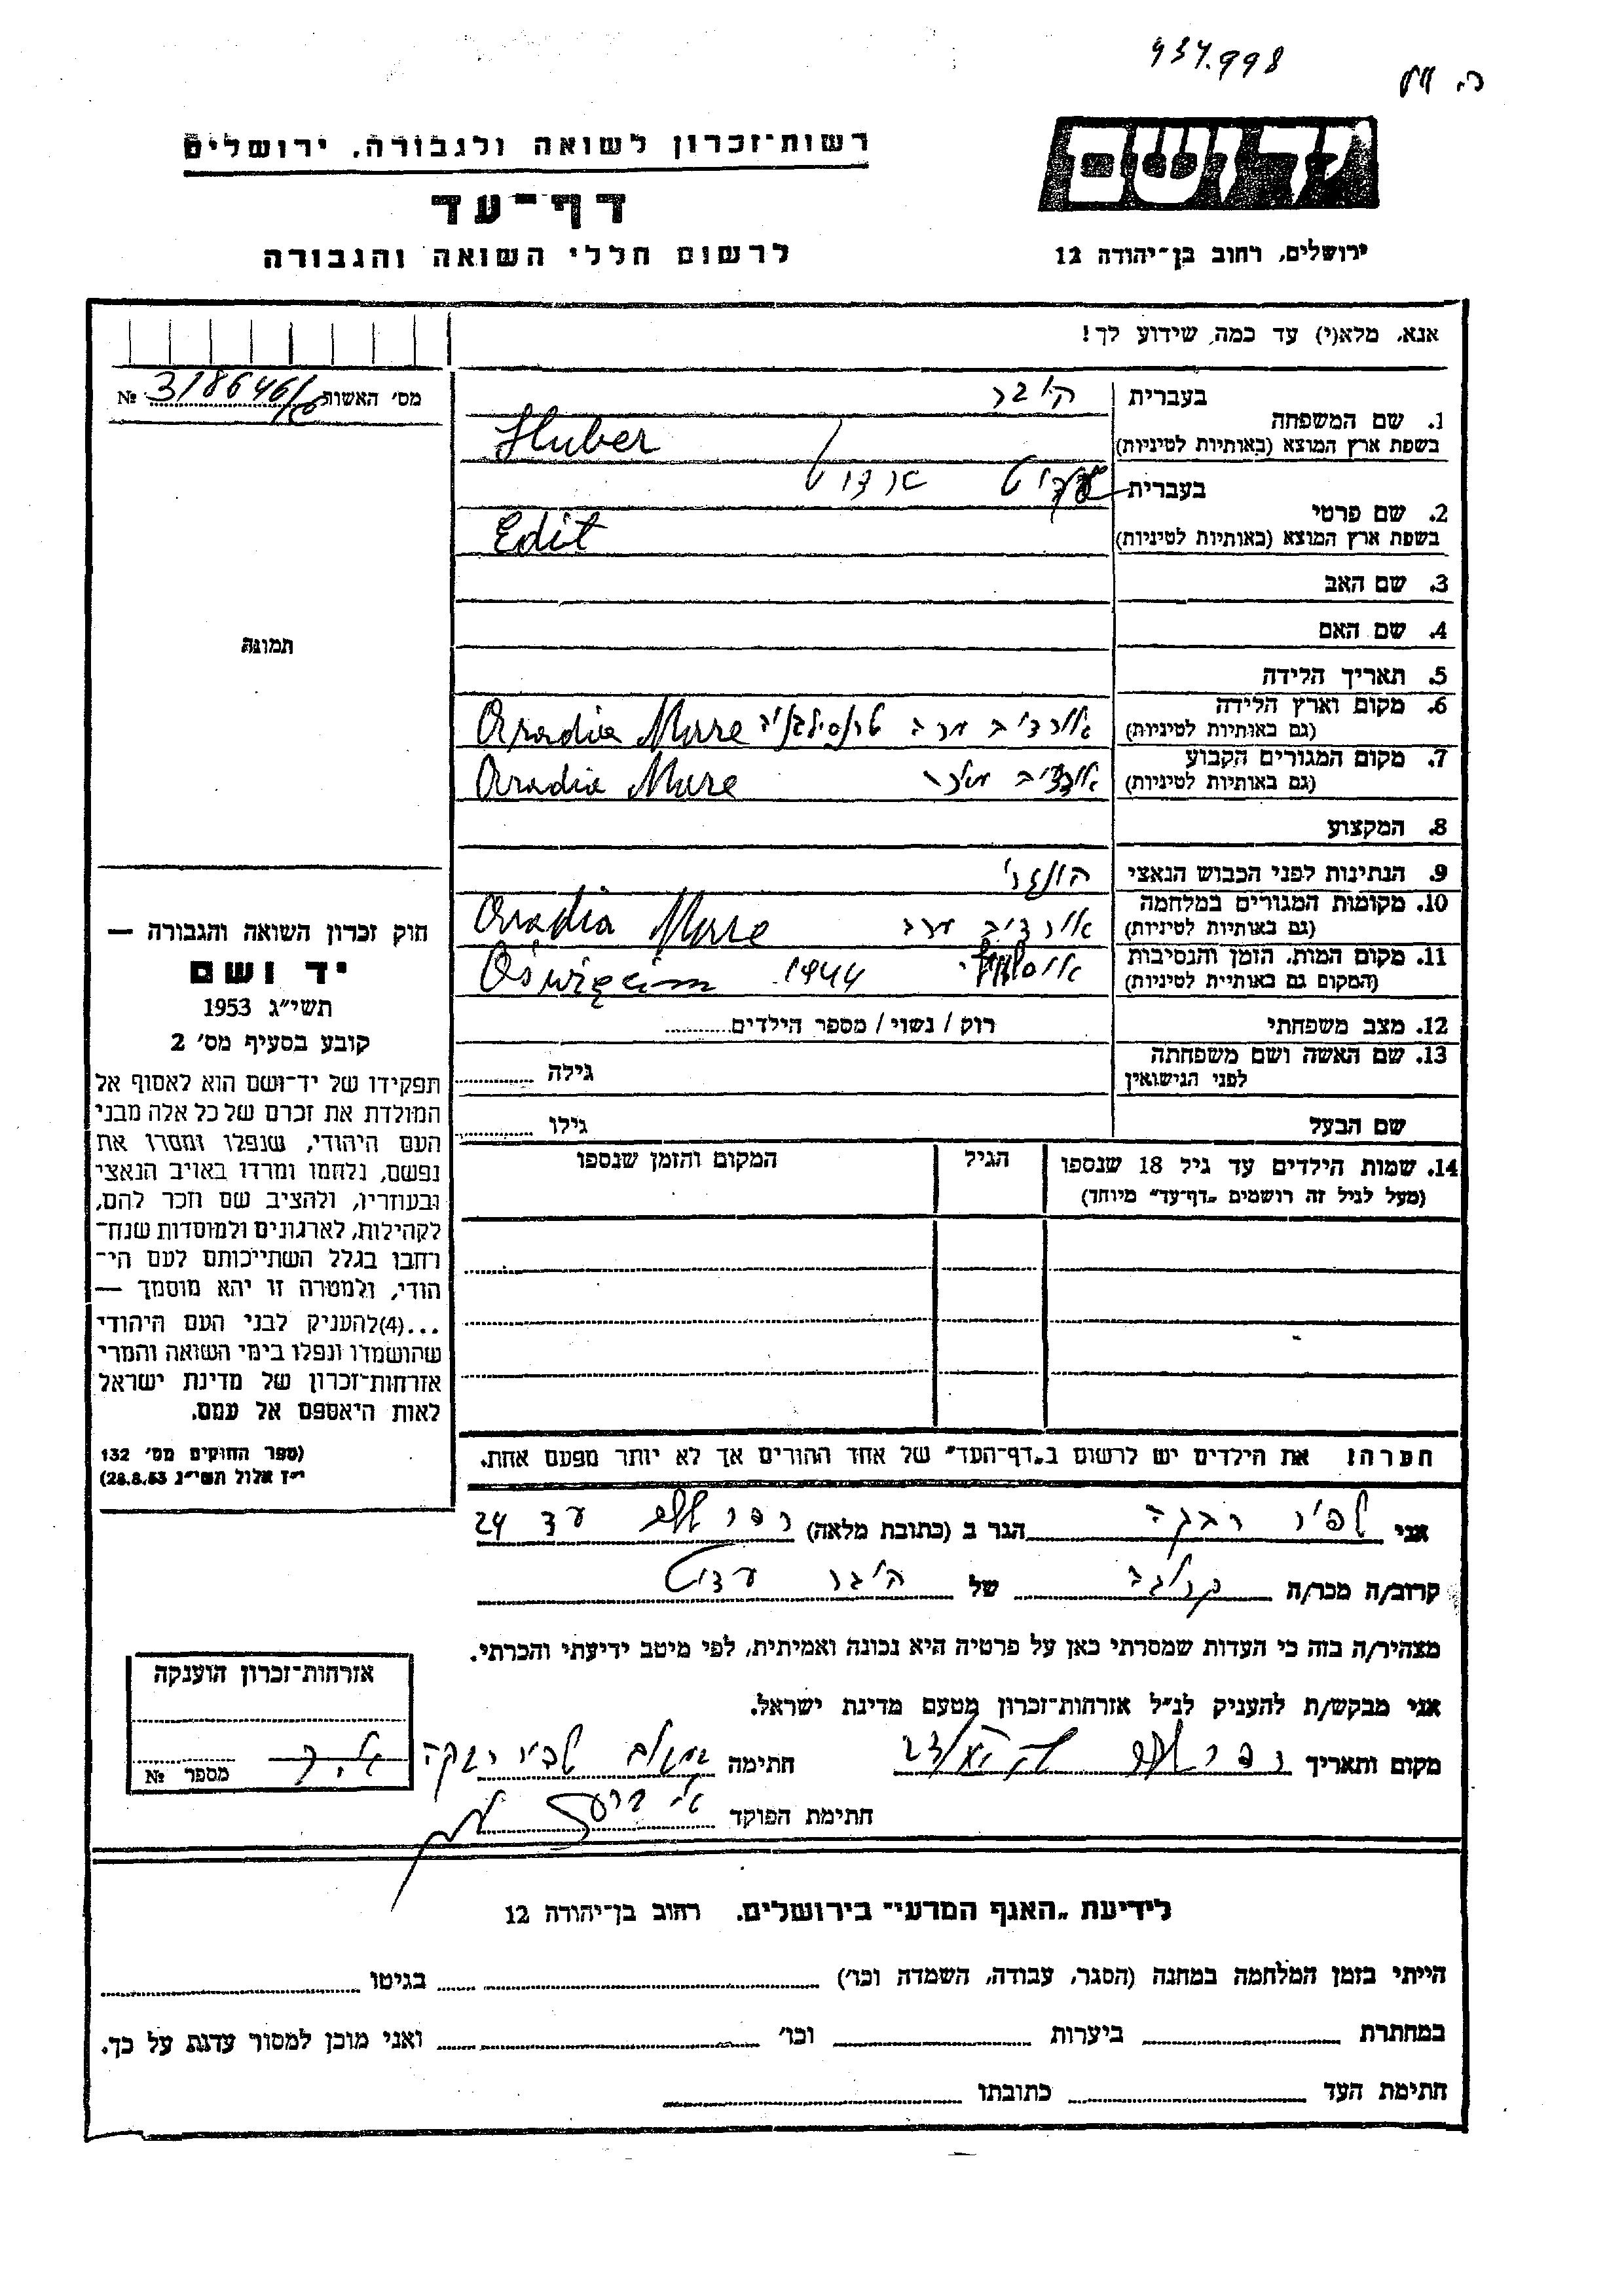 937.998
יד ושם
רשות־זכרון לשואה ולגבורה, ירושלים
דף־עד
לרשום חללי השואה והגבורה
ירושלים, רחוב בן־יהודה 12
אנא, מלא(י) עד כמה שידוע לך!
מס׳ האשות №
1. שם המשפחה
בעברית הובר
בשפת ארץ המוצא (באותיות לטיניות) Huber
2. שם פרטי
בעברית אדיט
בשפת ארץ המוצא (באותיות לטיניות) Edit
3. שם האב
4. שם האם
5. תאריך הלידה
6. מקום וארץ הלידה
(גם באותיות לטיניות) טרנסילבניה Oradia Mare
7. מקום המגורים הקבוע
(גם באותיות לטיניות) Oradia Mare
8. המקצוע
9. הנתינות לפני הכבוש הנאצי הונגרי
10. מקומות המגורים במלחמה
(גם באותיות לטיניות) Oradia Mare
11. מקום המות, הזמן והנסיבות
(המקום גם באותיית לטיניות) 1944 Oświęcim
12. מצב משפחתי רוק / נשוי / מספר הילדים
13. שם האשה ושם משפחתה
לפני הנישואין גילה
שם הבעל גילו
14. שמות הילדים עד גיל 18 שנספו
(מעל לגיל זה רושמים „דף־עד״ מיוחד)
הגיל
המקום והזמן שנספו
תמונה
חוק זכרון השואה והגבורה —
יד ושם
תשי״ג 1953
קובע בסעיף מס׳ 2
תפקידו של יד־ושם הוא לאסוף אל
המולדת את זכרם של כל אלה מבני
העם היהודי, שנפלו ומסרו את
נפשם, נלחמו ומרדו באויב הנאצי
ובעוזריו, ולהציב שם וזכר להם,
לקהילות, לארגונים ולמוסדות שנח־
רחבו בגלל השתייכותם לעם הי־
הודי, ולמטרה זו יהא מוסמך —
...(4)להעניק לבני העם היהודי
שהושמדו ונפלו בימי השואה והמרי
אזרחות־זכרון של מדינת ישראל
לאות היאספם אל עמם.
(ספר החוקים מס׳ 132
י״ז אלול תשי״ג 28.8.53)
הערה: את הילדים יש לרשום ב„דף־העד״ של אחד ההורים אך לא יותר מפעם אחת.
אני שפיר רבקה הגר ב (כתובת מלאה) 24
קרוב/ה מכר/ה קרובה של הובר עדיט
מצהיר/ה בזה כי העדות שמסרתי כאן על פרטיה היא נכונה ואמיתית, לפי מיטב ידיעתי והכרתי.
אני מבקש/ת להעניק לנ״ל אזרחות־זכרון מטעם מדינת ישראל.
מקום ותאריך חתימה שפיר רבקה
חתימת הפוקד
אזרחות־זכרון הוענקה
מספר №
לידיעת „האגף המדעי״ בירושלים. רחוב בן־יהודה 12
הייתי בזמן המלחמה במחנה (הסגר, עבודה, השמדה וכו׳) בגיטו
במחתרת ביערות וכו׳ ואני מוכן למסור עדות על כך.
חתימת העד כתובתו